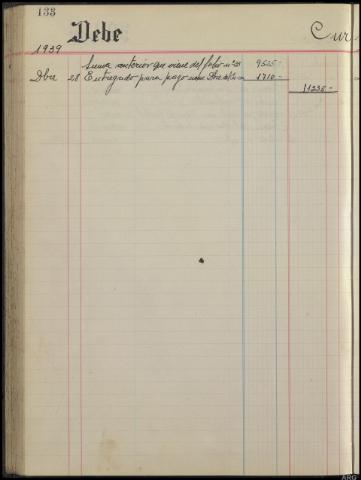 133
Debe
Cur
1939
Suma anterior que viene del folio nº 9525-
Dbre 28 Entregado para pago 1710-
11235-
ARG